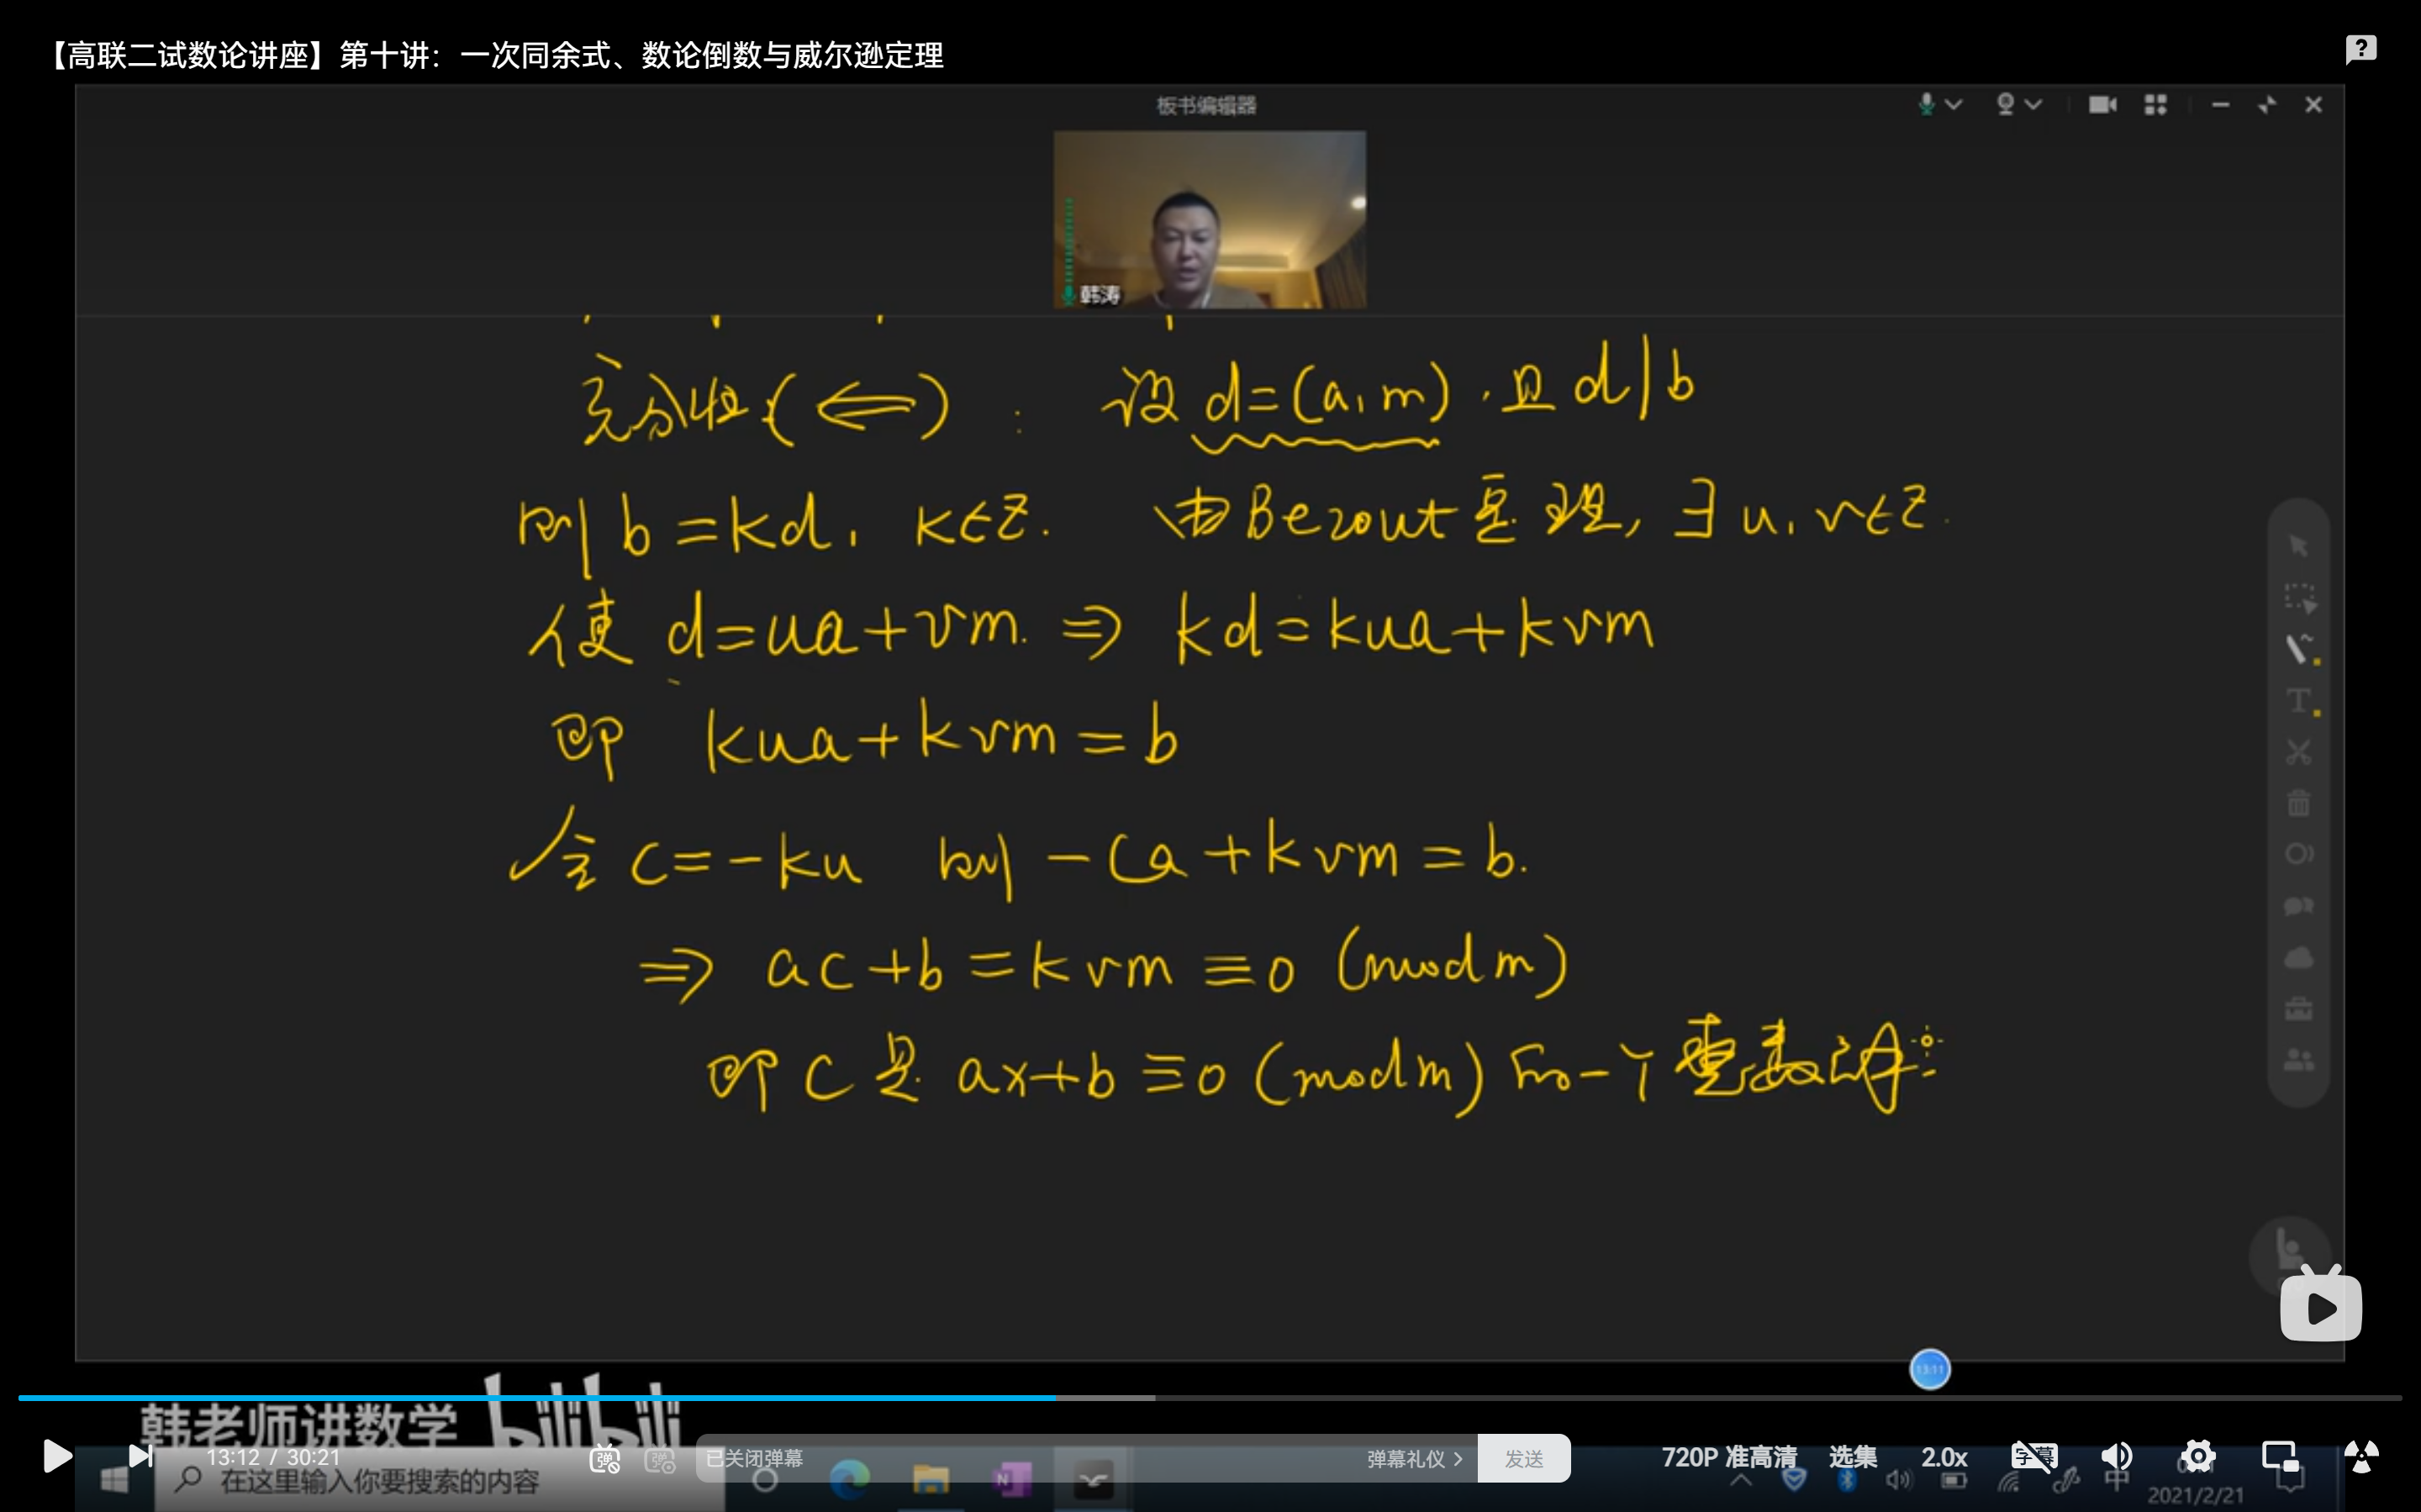 【高联二试数论讲座】第十讲：一次同余式、数论倒数与威尔逊定理
板书编辑器
韩涛
充分性(⇐)： 设 d=(a,m)，且 d|b
则 b=kd, k∈Z. 由Bezout定理, ∃u,v∈Z.
使 d=ua+vm. ⇒ kd=kua+kvm
即 kua+kvm=b
令 c=-ku 则 -ca+kvm=b.
⇒ ac+b=kvm≡0 (mod m)
即 c 是 ax+b≡0 (mod m) 的一个整数解
13:11
韩老师讲数学 bilibili
13:12 / 30:21 已关闭弹幕 弹幕礼仪 发送 720P 准高清 选集 2.0x 字幕
在这里输入你要搜索的内容 中
2021/2/21